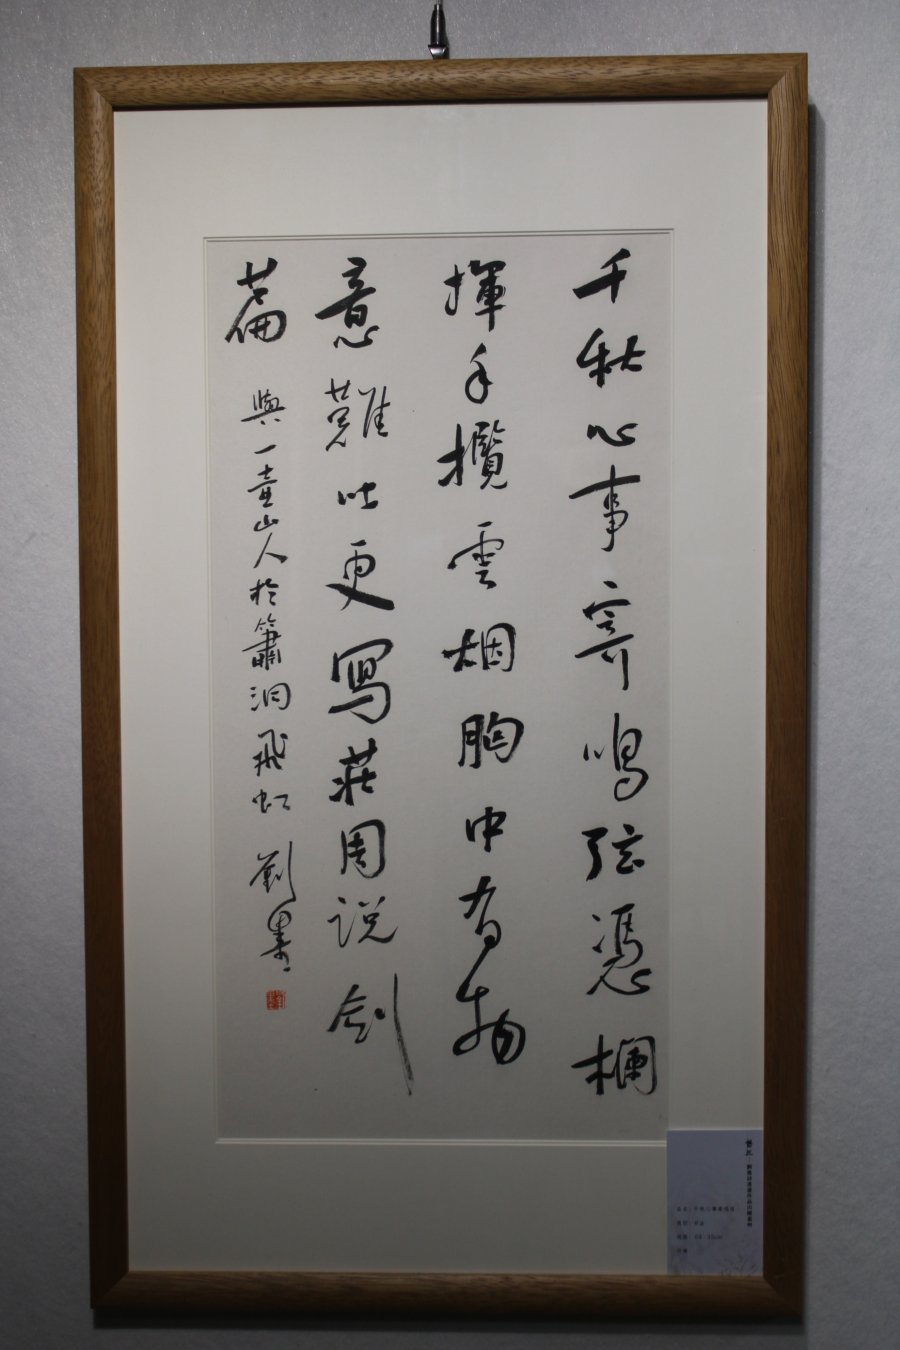 千秋心事寄鳴弦憑欄
揮手攬雲烟胸中有物
意難吐更寫莊周説劍
篇
與一壺山人於簫洞飛虹 劉墨